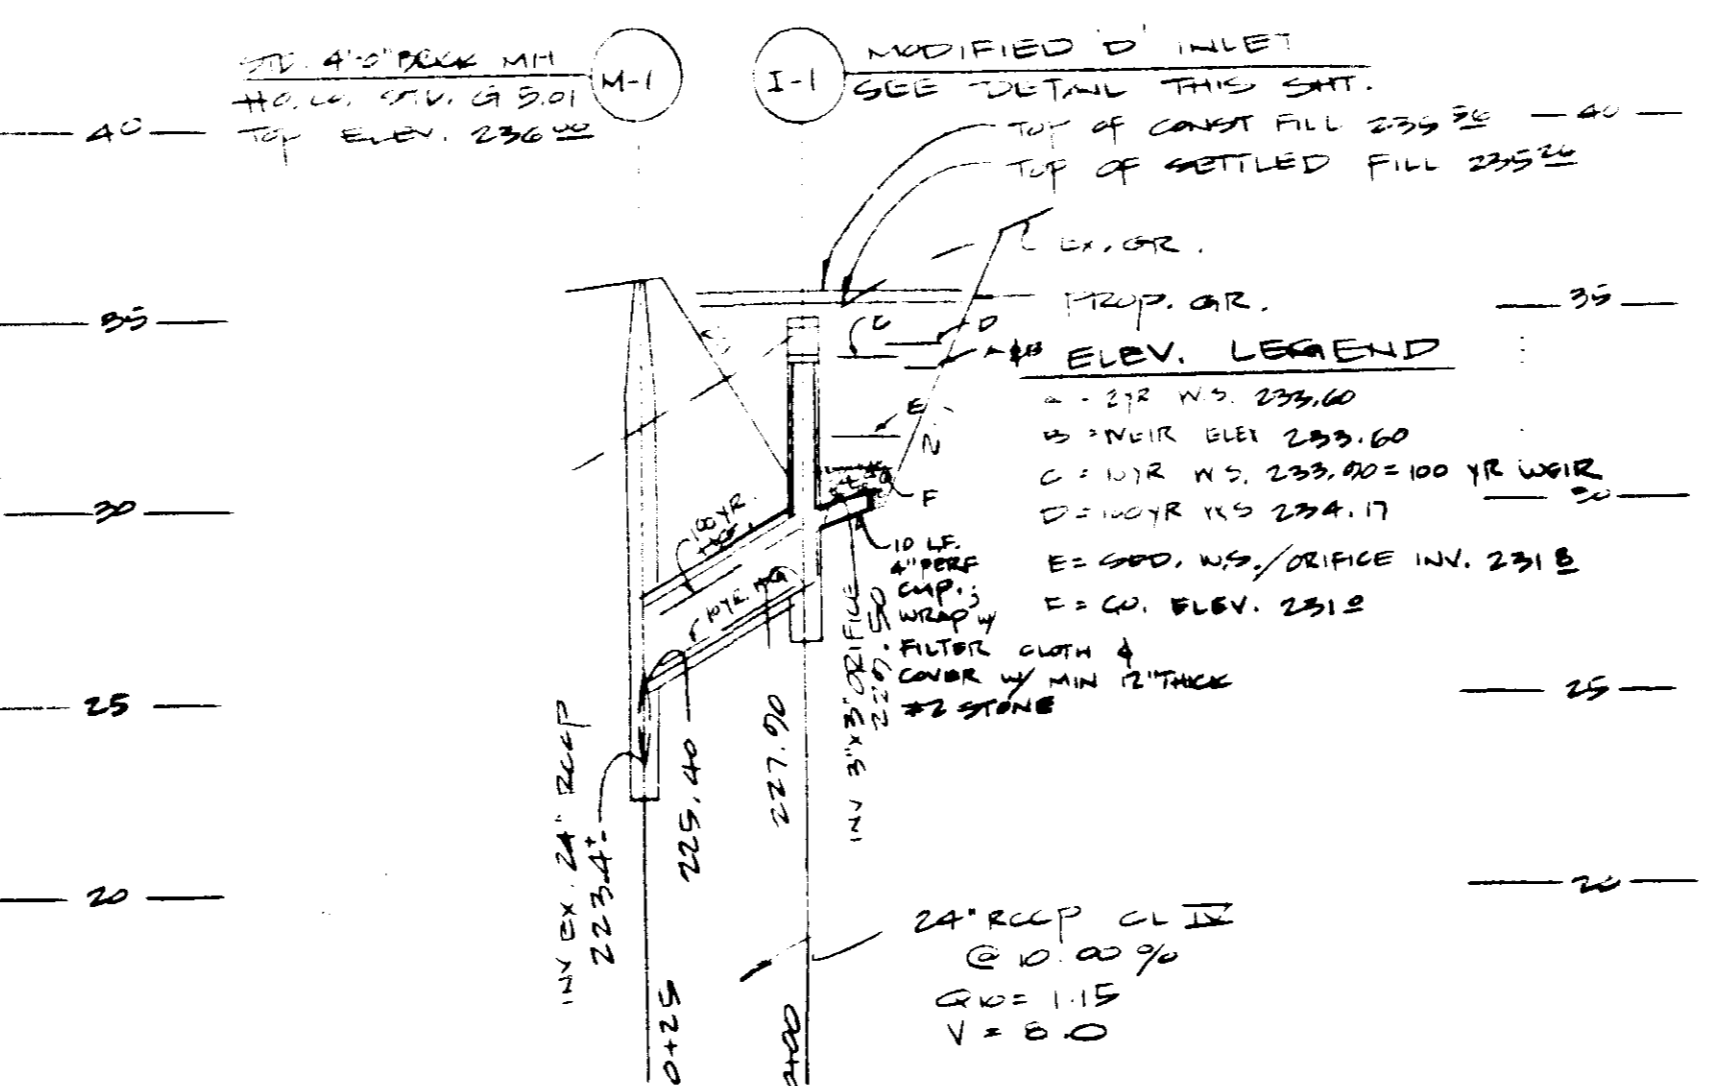 STD. 4'-0" BRICK MH
HO. CO. STD. G 5.01
TOP ELEV. 236.00
M-1
I-1
MODIFIED 'D' INLET
SEE DETAIL THIS SHT.
TOP OF CONST FILL 235.56
TOP OF SETTLED FILL 235.26
40
40
EX. GR.
PROP. GR.
35
35
C
D
A & B
E
F
ELEV. LEGEND
A - 2YR W.S. 233.60
B = WEIR ELEV 233.60
C = 10YR W.S. 233.90 = 100 YR WEIR
D = 100YR WS 234.17
E = SED. W.S./ORIFICE INV. 231.8
F = GW. ELEV. 231.0
30
30
100 YR. HGL
10 YR. HGL
10 LF.
4" PERF
CMP.;
WRAP W/
FILTER CLOTH &
COVER W/ MIN 12" THICK
#2 STONE
25
25
INV EX. 24" RCCP
223.4±
225.40
227.90
INV 3"x3" ORIFICE
229.50
20
20
24" RCCP CL IV
@ 10.00 %
Q10 = 1.15
V = 8.0
0+25
0+00